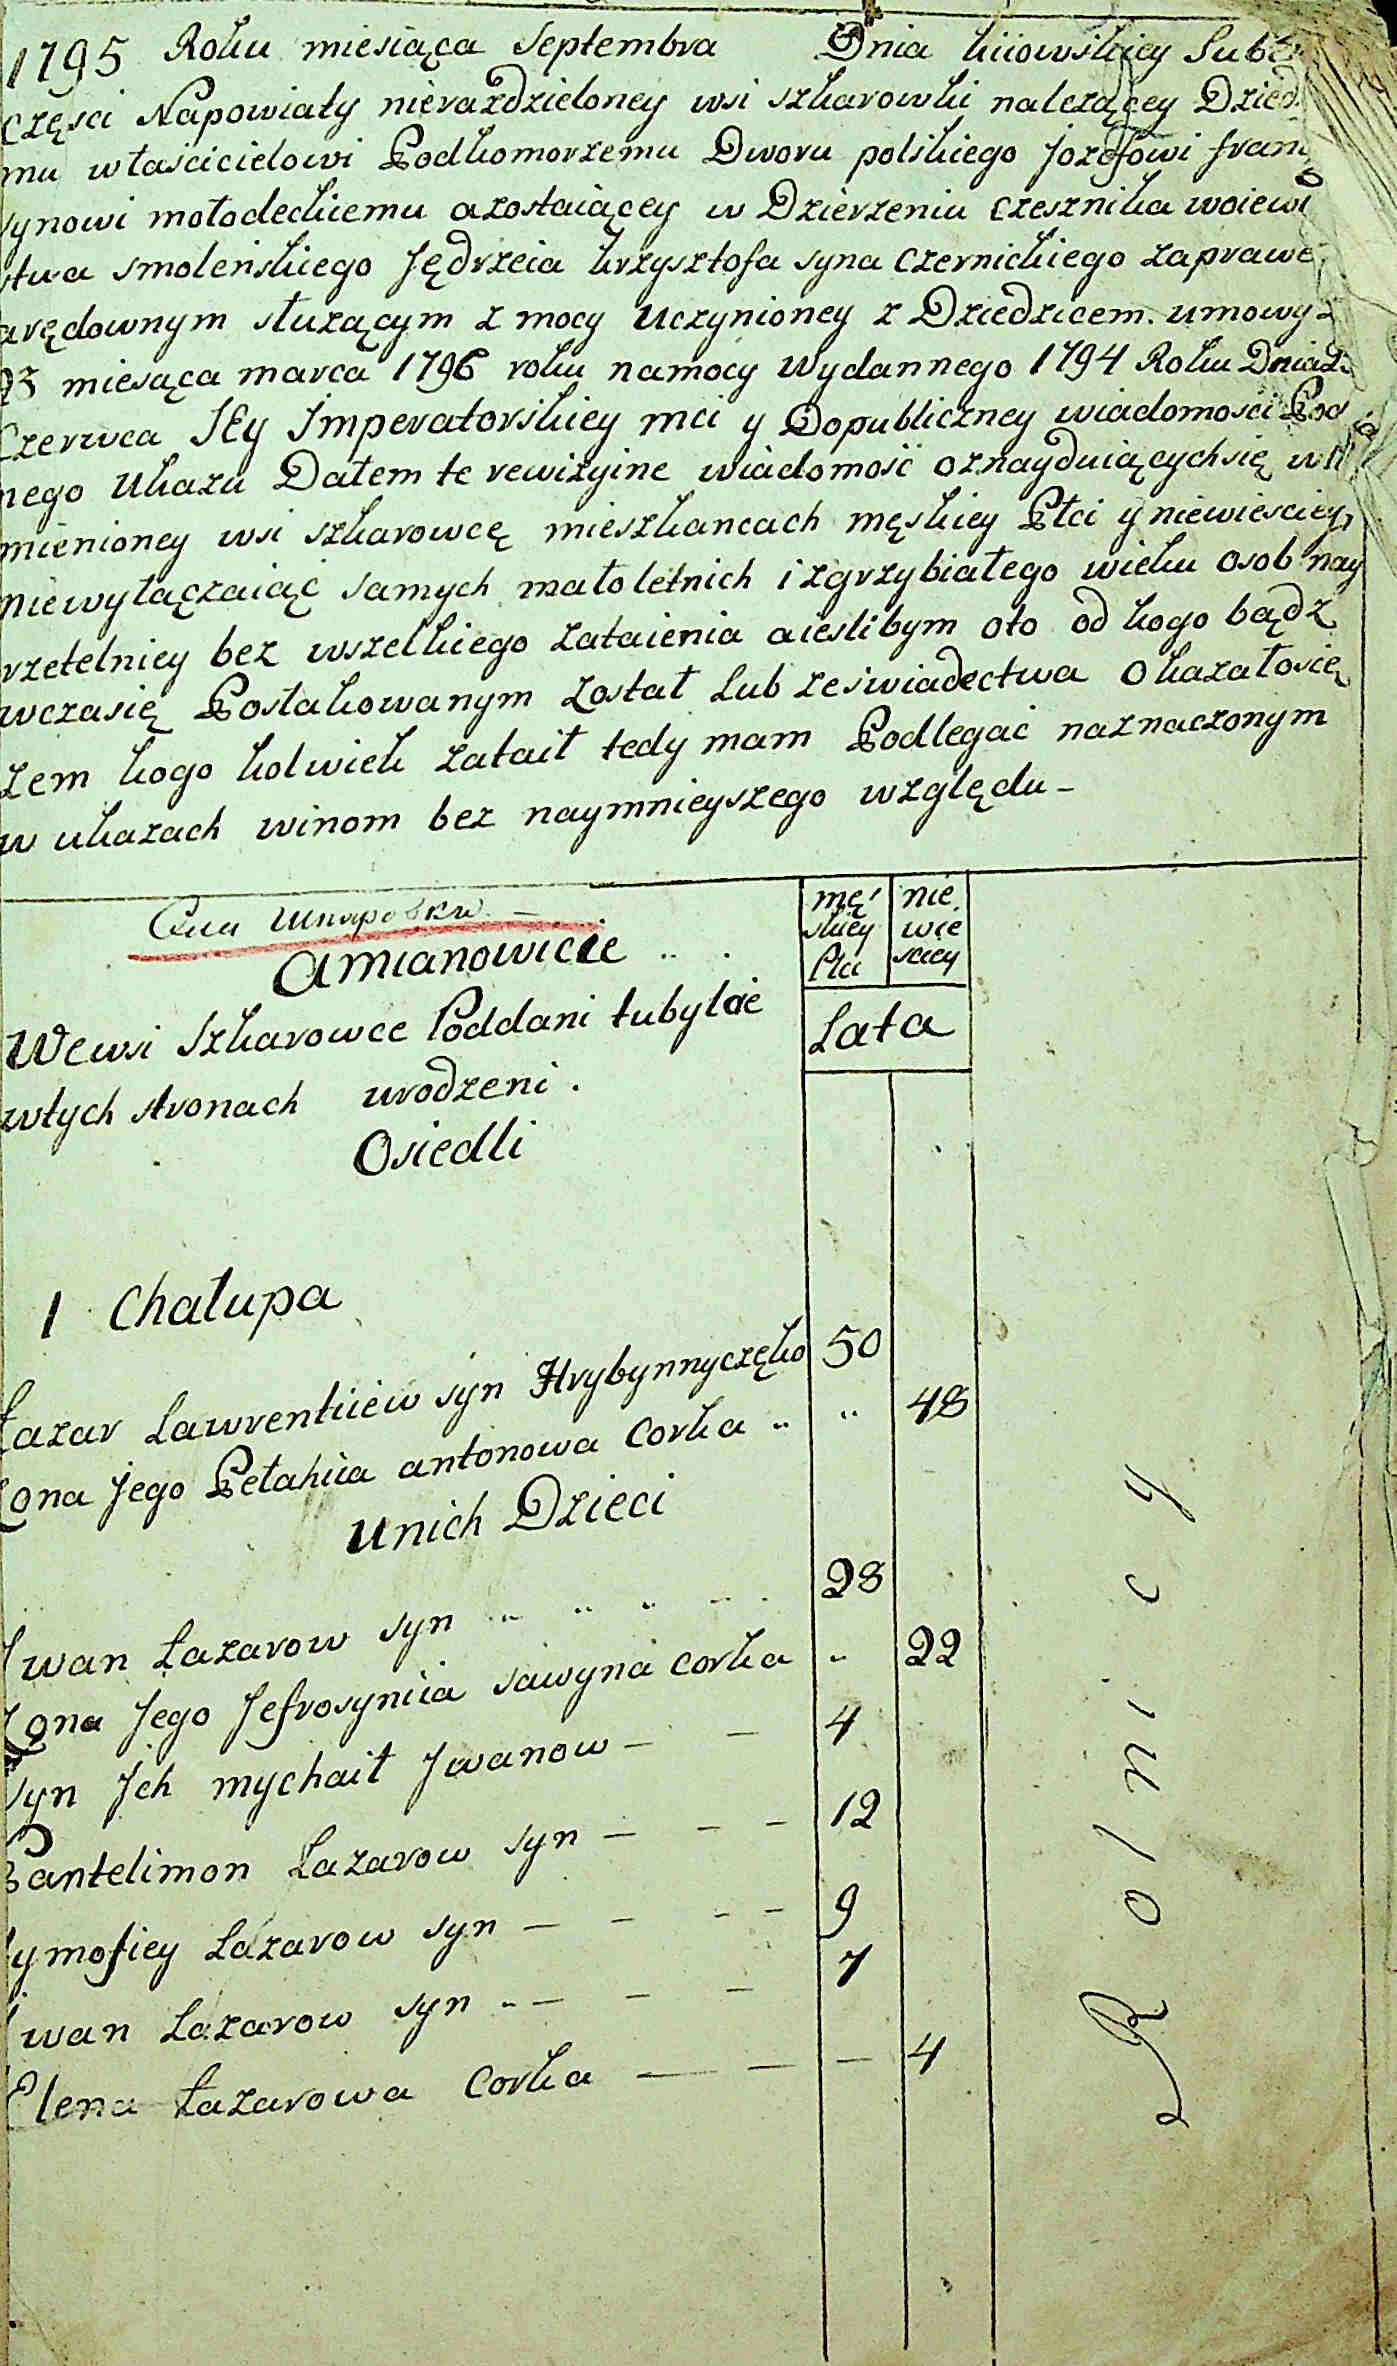 1795 Roku miesiąca Septembra Dnia kiiowskiey Sub
części Napowiaty nierazdzieloney wsi szkarowki należącey Dzied
mu właścicielowi Podkomorzemu Dworu polskiego Jozefowi fran
synowi mołodeckiemu azostaiącey w Dzierzeniu czesznika woiewo
stwa smolenskiego Jędrzeia krzysztofa syna Czernickiego zaprawe
arędownym służącym z mocy uczynioney z Dziedzicem umowy
23 miesąca marca 1796 roku namocy wydannego 1794 Roku Dnia
Czerwca JEy Jmperatorskiey mci y Dopubliczney wiadomosci Pod
nego Ukazu Dałem te rewizyine wiadomość oznayduiącychsię w
mienioney wsi szkarowcę mieszkancach męskiey Płci y niewiesciey,
niewyłączaiąć samych małoletnich i zgrzybiałego wieku osob nay
rzetelniey bez wszelkiego zataienia aieslibym oto od kogo bądz
wczasię Postakowanym został lub zeswiadectwa okazałosię
zem kogo kolwiek zataił tedy mam Podlegać naznaczonym
w ukazach winom bez naymnieyszego względu -
mę nie
skiey wie
Płci sciey
Amianowicie
Wewsi Szkarowce Poddani tubylcie
Lata
wtych stronach urodzeni.
Osiedli
1 Chałupa
Łazar Lawrentiiew syn Hrybynnyczęko 50
Zona Jego Pełahiia antonowa Corka " " 48
Unich Dzieci
Jwan Łazarow syn 28
Zona Jego Jefrosyniia sawyna corka " 22
Syn Jch mychaił Jwanow - - 4
Pantelimon Łazarow syn - - - 12
ymofiey Łazarow syn - - - - 9
Jwan Łazarow syn - - - 7
Elena Łazarowa Corka - - - 4
Rolnicy